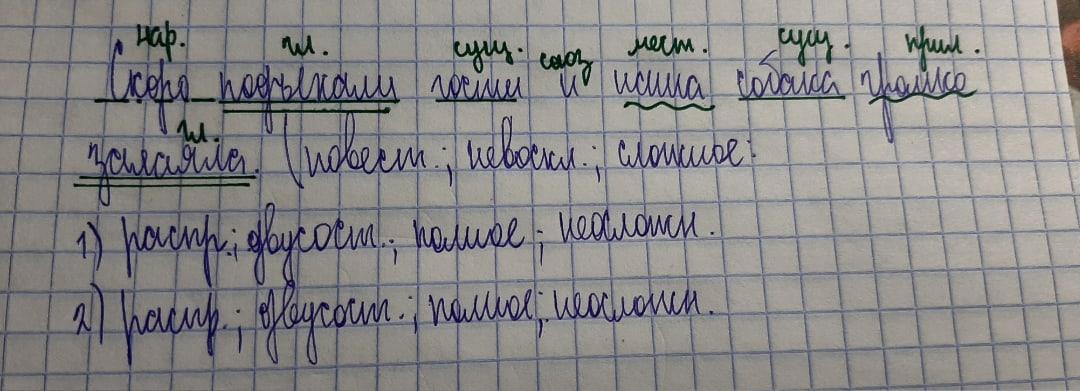 нар. гл. сущ. союз мест. сущ. прил.
Скоро подъехали гости и наша собака громко
гл.
залаяла. (повест.; невоскл.; сложное:
1) распр.; двусост.; полное; неосложн.
2) распр.; двусост.; полное; неосложн.